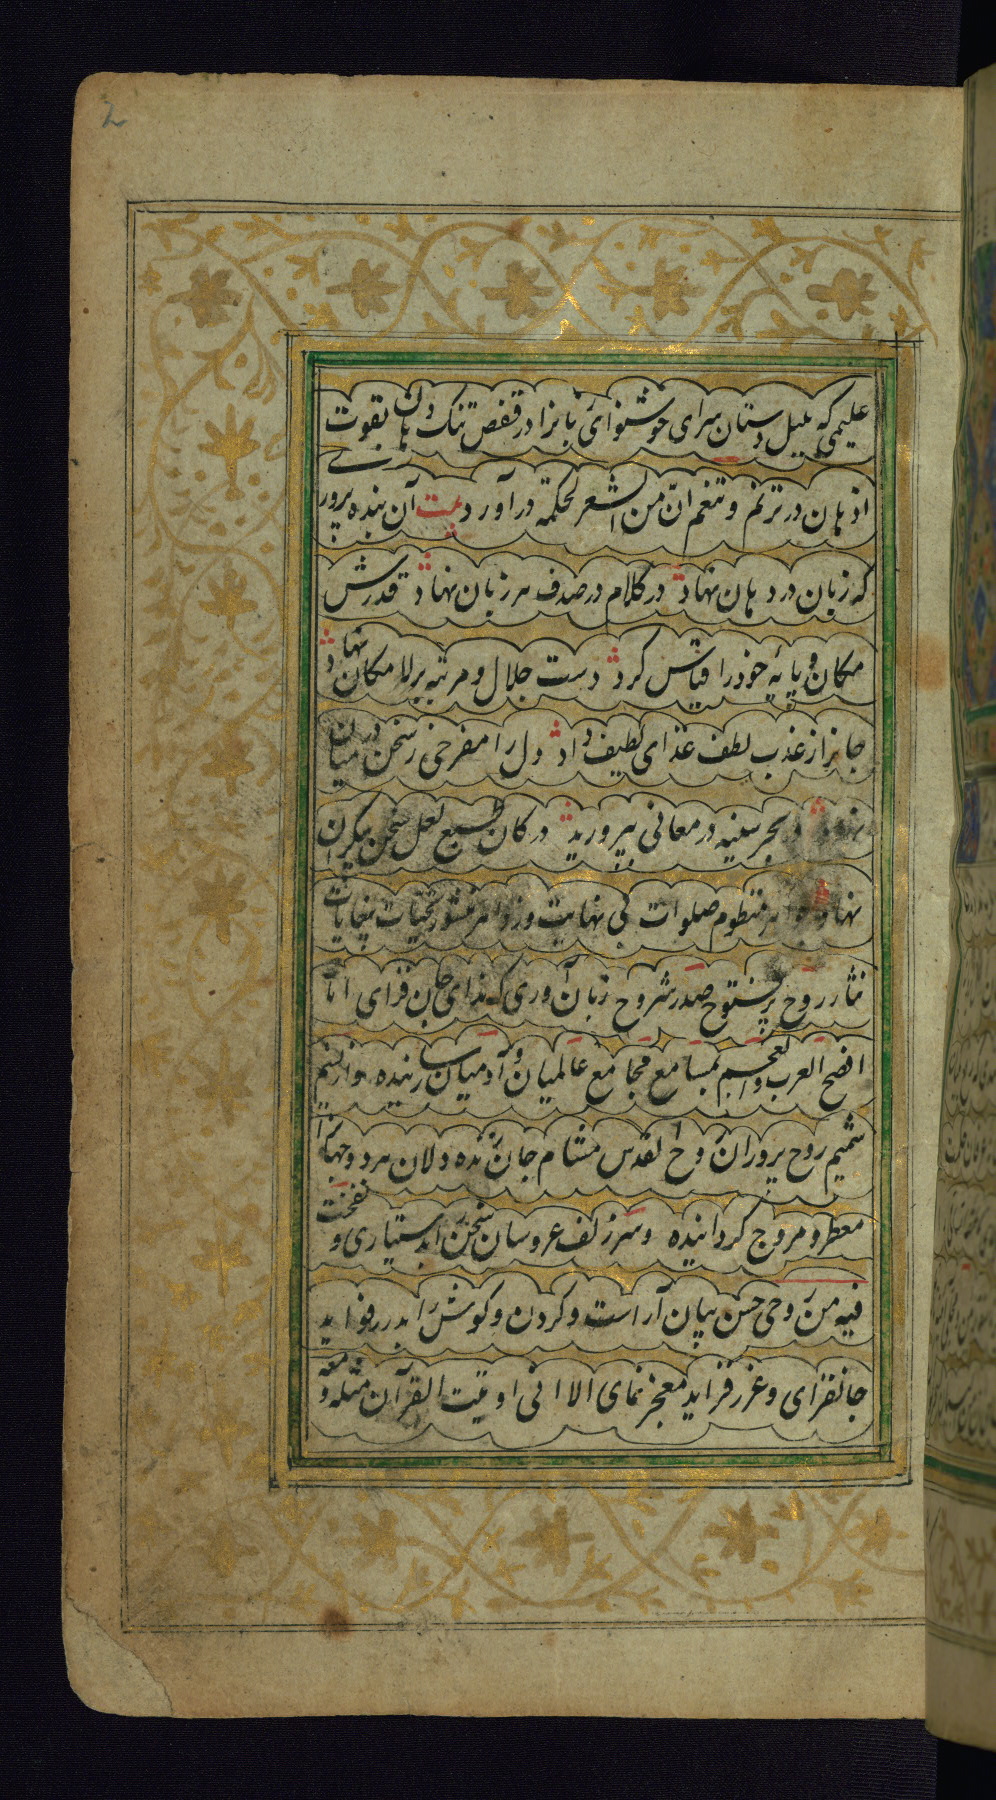 2
علیمی که بلبل دستان سرای خوشنوای زبانرا در قفص تنک دهان بقوت
اذهان در ترنم و تنغم انّ من الشعر لحکمة در آورد بیت آن بنده پرور
که زبان در دهان نهاد در کلام در صدف هر زبان نهاد قدرش
مکان و پایه خود را قیاس کرد دست جلال و مرتبه بر لامکان نهاد
جانرا ز عذب لطف غذای لطیف داد دل را مفرحی ز سخن در میان
نهاد در بحر سینه در معانی بپرورید در کان طبع لعل سخن بیکران
نهاد منظوم صلوات بی نهایت و زواهر منثور تحیات بیغایات
نثار روح پر فتوح صدر شروح زبان آوری که ندای جان فزای انا
افصح العرب والعجم بمسامع مجامع عالمیان و آدمیان رسانیده و از نسیم
شمیم روح پروران روح القدس مشام جان زنده دلان هر دو جهانرا
معطر و مروح کردانیده و سر زلف عروسان سخن را بدستیاری و نفخت
فیه من روحی حسن بیان آراست و کردن و کوش را بدرر فواید
جانفزای و غرر فراید معجز نمای الا انی اوتیت القرآن و مثله معه